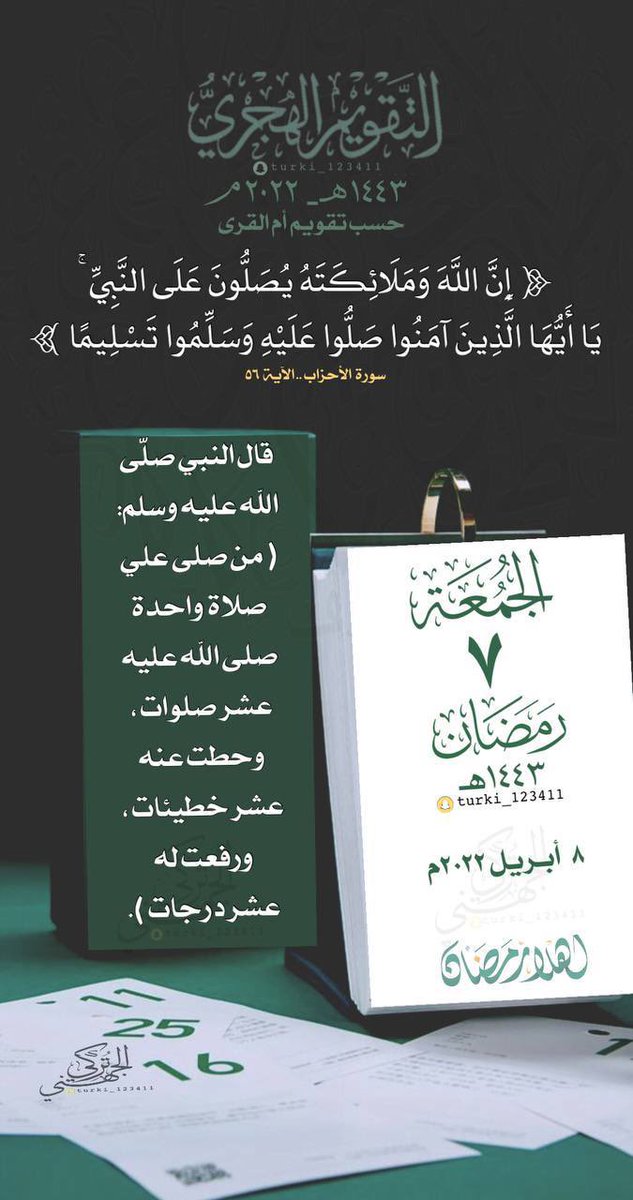 التَّقويم الهُجريُّ
turki_123411
١٤٤٣هـ _ ٢٠٢٢م
حسب تقويم أم القرى
﴿ إِنَّ اللَّهَ وَمَلَائِكَتَهُ يُصَلُّونَ عَلَى النَّبِيِّ ۚ
يَا أَيُّهَا الَّذِينَ آمَنُوا صَلُّوا عَلَيْهِ وَسَلِّمُوا تَسْلِيمًا ﴾
سورة الأحزاب..الآية ٥٦
قال النبي صلّى
الله عليه وسلم:
( من صلى علي
صلاة واحدة
صلى الله عليه
عشر صلوات،
وحطت عنه
عشر خطيئات،
ورفعت له
عشر درجات ).
الجُمُعَة
٧
رَمَضَان
١٤٤٣هـ
turki_123411
٨ أبريل ٢٠٢٢م
اهلا رمضان
11
25
16
تركي الجهني
turki_123411